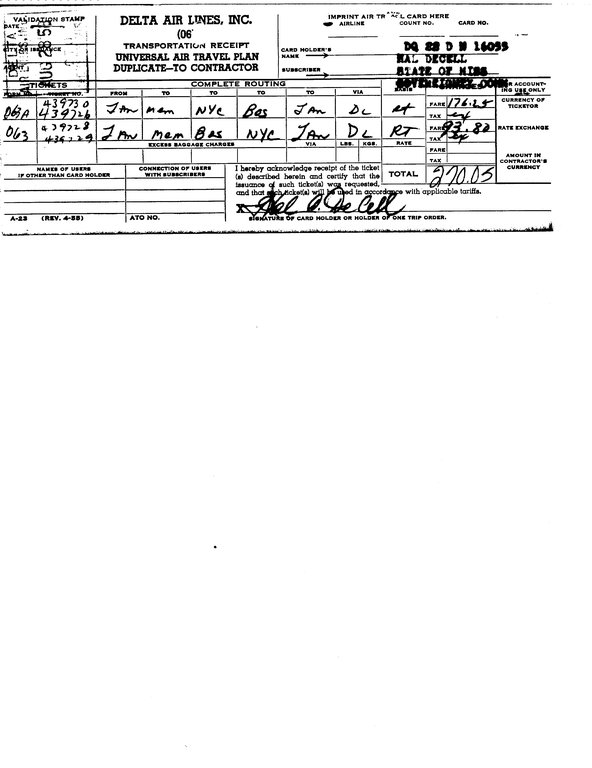 VALIDATION STAMP
DATE
DELTA
AUG 28 58
CITY OF ISSUANCE
AGENT
DELTA AIR LINES, INC.
(06
TRANSPORTATION RECEIPT
UNIVERSAL AIR TRAVEL PLAN
DUPLICATE—TO CONTRACTOR
IMPRINT AIR TRAVEL CARD HERE
AIRLINE COUNT NO. CARD NO.
CARD HOLDER'S NAME
DQ 28 D N 16099
HAL DECELL
SUBSCRIBER
STATE OF MISS
TICKETS COMPLETE ROUTING
TICKET NO. FROM TO TO TO TO VIA BASIS
FOR ACCOUNTING USE ONLY
063A 439730 439726 JAn mem NYC Bos JAn DL Rt FARE 176.25 TAX ex
CURRENCY OF TICKETOR
063 439728 439729 JAn mem Bos NYC JAn DL RT FARE 93.80 TAX ex
RATE EXCHANGE
EXCESS BAGGAGE CHARGES VIA LBS. KGS. RATE
FARE
TAX
NAMES OF USERS IF OTHER THAN CARD HOLDER
CONNECTION OF USERS WITH SUBSCRIBERS
I hereby acknowledge receipt of the ticket
(s) described herein and certify that the
issuance of such ticket(s) was requested,
and that such ticket(s) will be used in accordance with applicable tariffs.
TOTAL 270.05
AMOUNT IN CONTRACTOR'S CURRENCY
X Hal C. DeCell
SIGNATURE OF CARD HOLDER OR HOLDER OF ONE TRIP ORDER.
A-23 (REV. 4-58) ATO NO.